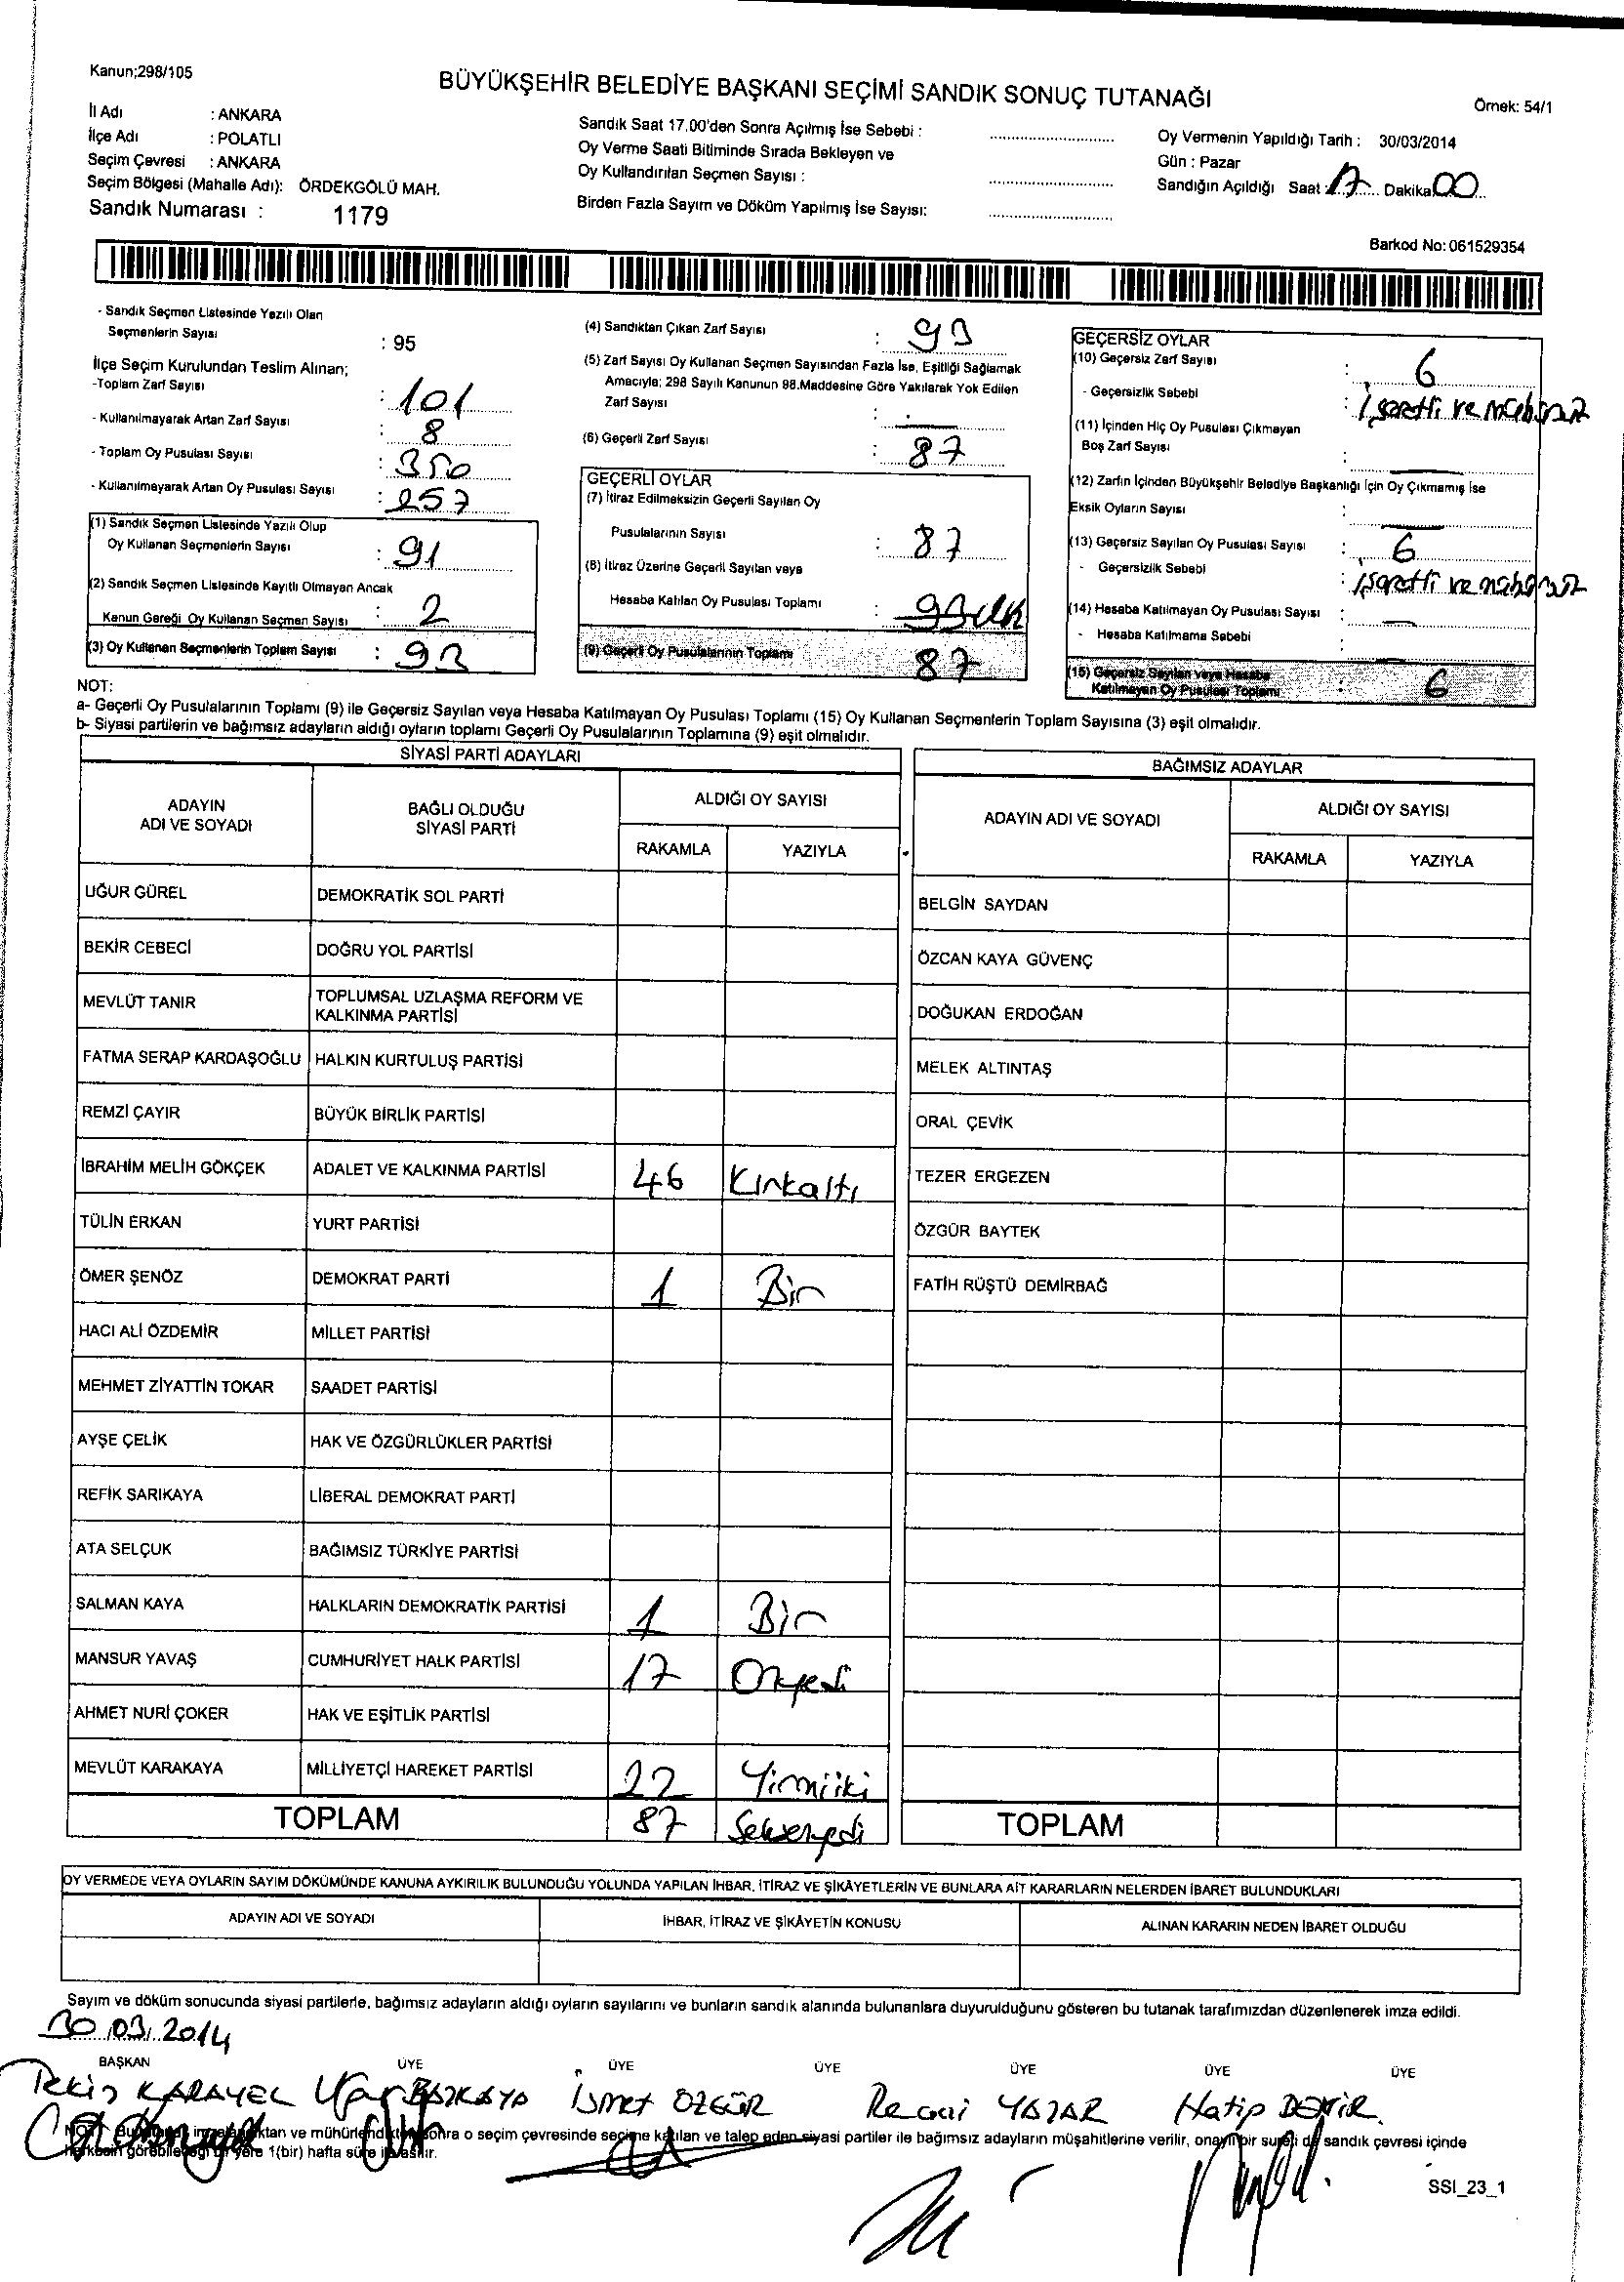 Kanun;298/105
BÜYÜKŞEHİR BELEDİYE BAŞKANI SEÇİMİ SANDIK SONUÇ TUTANAĞI
Örnek: 54/1
İl Adı : ANKARA
İlçe Adı : POLATLI
Seçim Çevresi : ANKARA
Seçim Bölgesi (Mahalle Adı): ÖRDEKGÖLÜ MAH.
Sandık Numarası : 1179
Sandık Saat 17.00'den Sonra Açılmış İse Sebebi :
Oy Verme Saati Bitiminde Sırada Bekleyen ve
Oy Kullandırılan Seçmen Sayısı :
Birden Fazla Sayım ve Döküm Yapılmış İse Sayısı:
Oy Vermenin Yapıldığı Tarih : 30/03/2014
Gün : Pazar
Sandığın Açıldığı Saat : 17 Dakika 00
Barkod No: 061529354
- Sandık Seçmen Listesinde Yazılı Olan
Seçmenlerin Sayısı : 95
İlçe Seçim Kurulundan Teslim Alınan;
-Toplam Zarf Sayısı : 101
- Kullanılmayarak Artan Zarf Sayısı : 8
- Toplam Oy Pusulası Sayısı : 350
- Kullanılmayarak Artan Oy Pusulası Sayısı : 257
(1) Sandık Seçmen Listesinde Yazılı Olup
Oy Kullanan Seçmenlerin Sayısı : 91
(2) Sandık Seçmen Listesinde Kayıtlı Olmayan Ancak
Kanun Gereği Oy Kullanan Seçmen Sayısı : 2
(3) Oy Kullanan Seçmenlerin Toplam Sayısı : 93
(4) Sandıktan Çıkan Zarf Sayısı : 93
(5) Zarf Sayısı Oy Kullanan Seçmen Sayısından Fazla İse, Eşitliği Sağlamak
Amacıyla; 298 Sayılı Kanunun 98.Maddesine Göre Yakılarak Yok Edilen
Zarf Sayısı : —
(6) Geçerli Zarf Sayısı : 87
GEÇERLİ OYLAR
(7) İtiraz Edilmeksizin Geçerli Sayılan Oy
Pusulalarının Sayısı : 87
(8) İtiraz Üzerine Geçerli Sayılan veya
Hesaba Katılan Oy Pusulası Toplamı :
(9) Geçerli Oy Pusulalarının Toplamı 87
GEÇERSİZ OYLAR
(10) Geçersiz Zarf Sayısı : 6
- Geçersizlik Sebebi : İşaretli ve mühürsüz
(11) İçinden Hiç Oy Pusulası Çıkmayan
Boş Zarf Sayısı : —
(12) Zarfın İçinden Büyükşehir Belediye Başkanlığı İçin Oy Çıkmamış İse
Eksik Oyların Sayısı : —
(13) Geçersiz Sayılan Oy Pusulası Sayısı : 6
- Geçersizlik Sebebi : İşaretli ve mühürsüz
(14) Hesaba Katılmayan Oy Pusulası Sayısı : —
- Hesaba Katılmama Sebebi :
(15) Geçersiz Sayılan veya Hesaba
Katılmayan Oy Pusulası Toplamı : 6
NOT:
a- Geçerli Oy Pusulalarının Toplamı (9) ile Geçersiz Sayılan veya Hesaba Katılmayan Oy Pusulası Toplamı (15) Oy Kullanan Seçmenlerin Toplam Sayısına (3) eşit olmalıdır.
b- Siyasi partilerin ve bağımsız adayların aldığı oyların toplamı Geçerli Oy Pusulalarının Toplamına (9) eşit olmalıdır.
SİYASİ PARTİ ADAYLARI
ADAYIN ADI VE SOYADI
BAĞLI OLDUĞU SİYASİ PARTİ
ALDIĞI OY SAYISI
RAKAMLA YAZIYLA
UĞUR GÜREL DEMOKRATİK SOL PARTİ
BEKİR CEBECİ DOĞRU YOL PARTİSİ
MEVLÜT TANIR TOPLUMSAL UZLAŞMA REFORM VE
KALKINMA PARTİSİ
FATMA SERAP KARDAŞOĞLU HALKIN KURTULUŞ PARTİSİ
REMZİ ÇAYIR BÜYÜK BİRLİK PARTİSİ
İBRAHİM MELİH GÖKÇEK ADALET VE KALKINMA PARTİSİ 46 Kırkaltı
TÜLİN ERKAN YURT PARTİSİ
ÖMER ŞENÖZ DEMOKRAT PARTİ 1 Bir
HACI ALİ ÖZDEMİR MİLLET PARTİSİ
MEHMET ZİYATTİN TOKAR SAADET PARTİSİ
AYŞE ÇELİK HAK VE ÖZGÜRLÜKLER PARTİSİ
REFİK SARIKAYA LİBERAL DEMOKRAT PARTİ
ATA SELÇUK BAĞIMSIZ TÜRKİYE PARTİSİ
SALMAN KAYA HALKLARIN DEMOKRATİK PARTİSİ 1 Bir
MANSUR YAVAŞ CUMHURİYET HALK PARTİSİ 17 Onyedi
AHMET NURİ ÇOKER HAK VE EŞİTLİK PARTİSİ
MEVLÜT KARAKAYA MİLLİYETÇİ HAREKET PARTİSİ 22 Yirmiiki
TOPLAM 87 Seksenyedi
BAĞIMSIZ ADAYLAR
ADAYIN ADI VE SOYADI
ALDIĞI OY SAYISI
RAKAMLA YAZIYLA
BELGİN SAYDAN
ÖZCAN KAYA GÜVENÇ
DOĞUKAN ERDOĞAN
MELEK ALTINTAŞ
ORAL ÇEVİK
TEZER ERGEZEN
ÖZGÜR BAYTEK
FATİH RÜŞTÜ DEMİRBAĞ
TOPLAM
OY VERMEDE VEYA OYLARIN SAYIM DÖKÜMÜNDE KANUNA AYKIRILIK BULUNDUĞU YOLUNDA YAPILAN İHBAR, İTİRAZ VE ŞİKÂYETLERİN VE BUNLARA AİT KARARLARIN NELERDEN İBARET BULUNDUKLARI
ADAYIN ADI VE SOYADI İHBAR, İTİRAZ VE ŞİKÂYETİN KONUSU ALINAN KARARIN NEDEN İBARET OLDUĞU
Sayım ve döküm sonucunda siyasi partilerle, bağımsız adayların aldığı oyların sayılarını ve bunların sandık alanında bulunanlara duyurulduğunu gösteren bu tutanak tarafımızdan düzenlenerek imza edildi.
30.03.2014
BAŞKAN ÜYE ÜYE ÜYE ÜYE ÜYE ÜYE
Tekin KARAYEL Uğur BAŞKAYA İsmet ÖZGÜR Recai YAŞAR Hatip DEMİR
NOT: Bu tutanak imzalandıktan ve mühürlendikten sonra o seçim çevresinde seçime katılan ve talep eden siyasi partiler ile bağımsız adayların müşahitlerine verilir, onaylı bir sureti de sandık çevresi içinde
herkesin görebileceği bir yere 1(bir) hafta süre ile asılır.
SSI_23_1